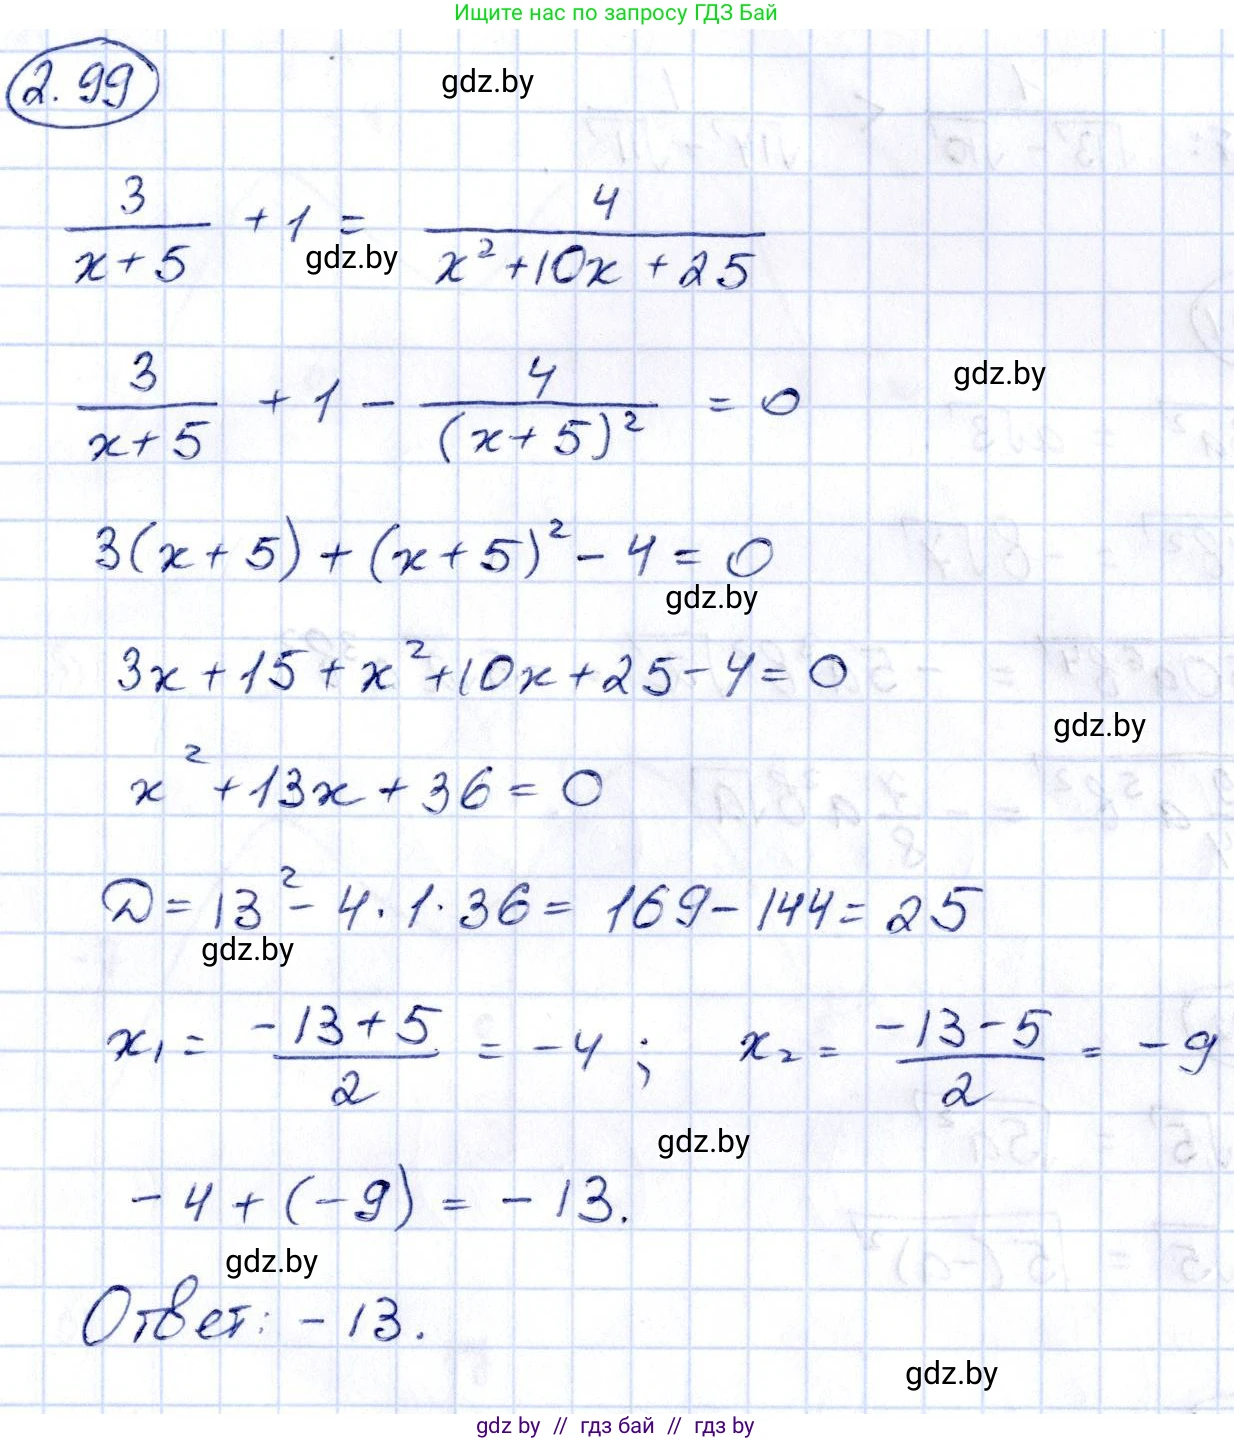 Ищите нас по запросу ГДЗ Бай
2.99
gdz.by
3/(x+5) + 1 = 4/(x²+10x+25)
gdz.by
3/(x+5) + 1 - 4/(x+5)² = 0
gdz.by
3(x+5)+(x+5)²-4=0
gdz.by
3x+15+x²+10x+25-4=0
gdz.by
x²+13x+36=0
D=13²-4·1·36=169-144=25
gdz.by
x₁= (-13+5)/2 = -4 ; x₂= (-13-5)/2 = -9
gdz.by
-4+(-9)=-13.
gdz.by
Ответ: -13.
gdz.by
gdz by // гдз бай // гдз by